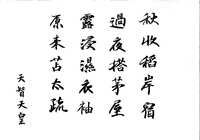 秋收稻岸宿
過夜搭茅屋
露浸濕衣袖
原来苫太疏
天智天皇